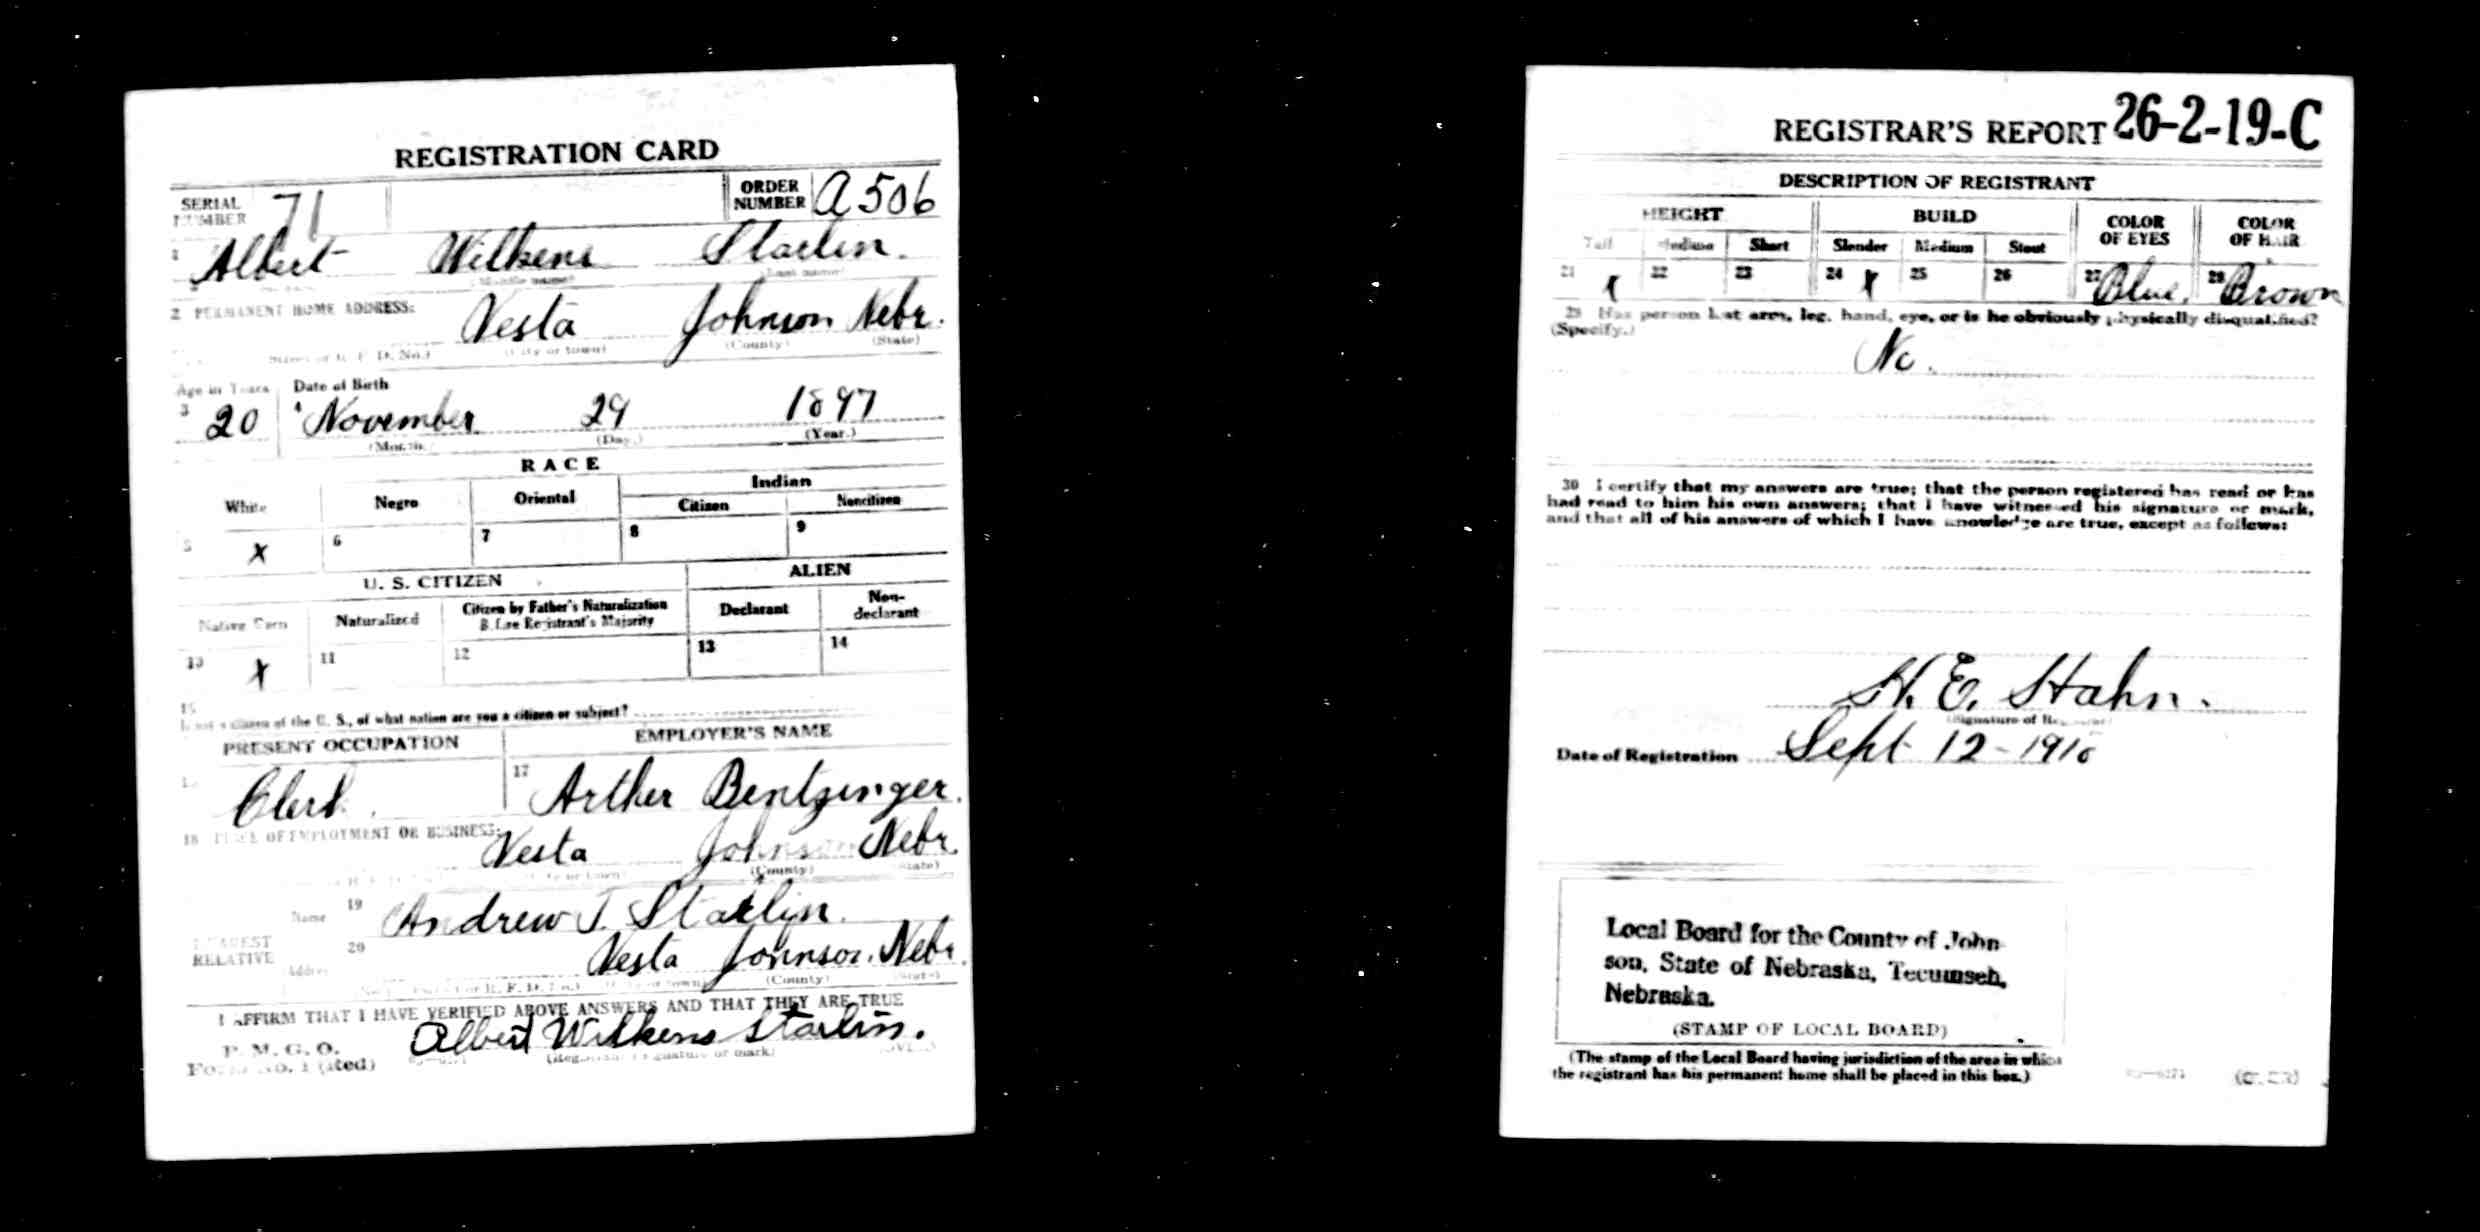 REGISTRATION CARD
SERIAL NUMBER 71 ORDER NUMBER A 506
1 Albert Wilkens Starlin.
(Middle name) (Last name)
2 PERMANENT HOME ADDRESS:
Vesta Johnson Nebr.
(Street or R. F. D. No.) (City or town) (County) (State)
Age in Years Date of Birth
3 20 4 November 29 1897
(Month) (Day.) (Year.)
RACE
White Negro Oriental Indian
Citizen Noncitizen
5 X 6 7 8 9
U. S. CITIZEN ALIEN
Native Born Naturalized Citizen by Father's Naturalization Before Registrant's Majority Declarant Non-declarant
10 X 11 12 13 14
15
If not a citizen of the U. S., of what nation are you a citizen or subject?
PRESENT OCCUPATION EMPLOYER'S NAME
Clerk. 17 Arther Bentzinger.
18 PLACE OF EMPLOYMENT OR BUSINESS:
Vesta Johnson Nebr.
(City or town) (County) (State)
Name 19 Andrew J. Starlin.
NEAREST RELATIVE
Address 20 Vesta Johnson. Nebr.
(No.) (Street or R. F. D. No.) (City or town) (County) (State)
I AFFIRM THAT I HAVE VERIFIED ABOVE ANSWERS AND THAT THEY ARE TRUE
P. M. G. O.
Form No. 1 (Red)
Albert Wilkens Starlin.
(Registrant's signature or mark) (OVER)
REGISTRAR'S REPORT 26-2-19-C
DESCRIPTION OF REGISTRANT
HEIGHT BUILD COLOR OF EYES COLOR OF HAIR
Tall Medium Short Slender Medium Stout
21 X 22 23 24 X 25 26 27 Blue. 28 Brown
29 Has person lost arm, leg, hand, eye, or is he obviously physically disqualified?
(Specify.)
No.
30 I certify that my answers are true; that the person registered has read or has
had read to him his own answers; that I have witnessed his signature or mark,
and that all of his answers of which I have knowledge are true, except as follows:
H. E. Stahn.
(Signature of Registrar)
Date of Registration Sept 12-1918
Local Board for the County of John-
son, State of Nebraska, Tecumseh,
Nebraska.
(STAMP OF LOCAL BOARD)
(The stamp of the Local Board having jurisdiction of the area in which
the registrant has his permanent home shall be placed in this box.)
(OVER)